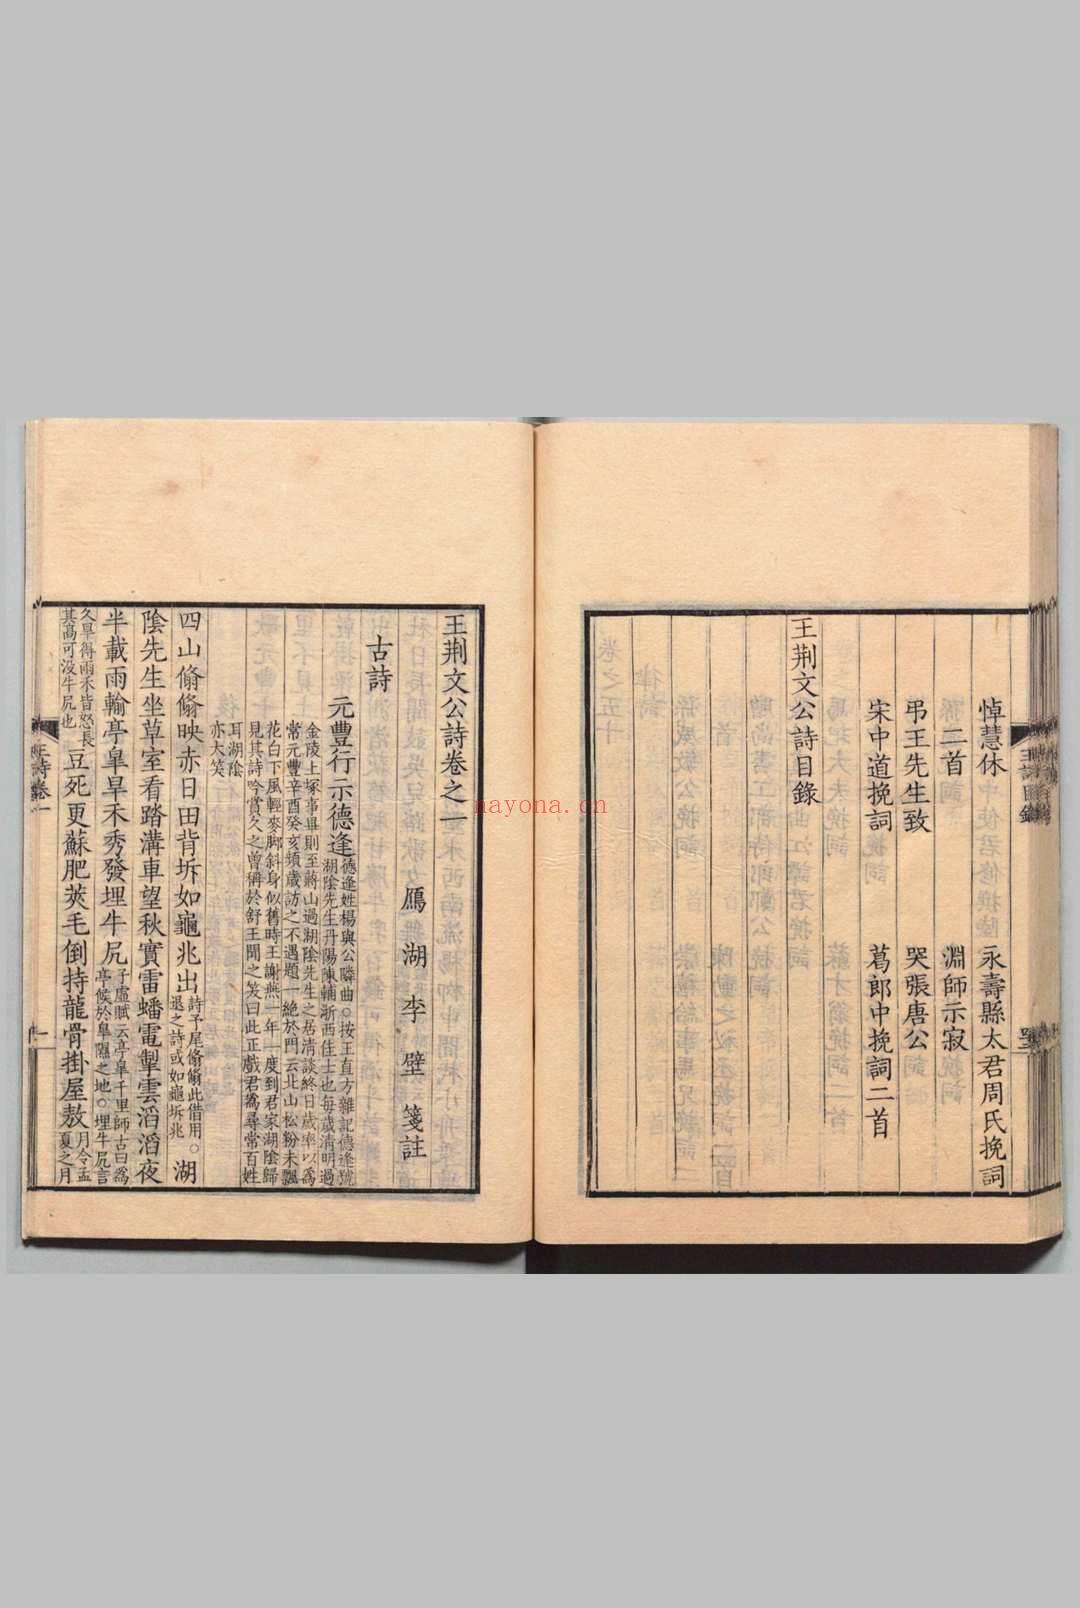 悼慧休 永壽縣太君周氏挽詞
二首 淵師示寂
弔王先生致 哭張唐公
宋中道挽詞 葛郎中挽詞二首
王荆文公詩目錄
王荆文公詩卷之一
鴈湖李壁箋註
古詩
元豐行示德逢
德逢姓楊與公隣曲○按王直方雜記德逢號
湖陰先生丹陽陳輔浙西佳士也每歲清明過
金陵上塚事畢則至蔣山過湖陰先生之居清談終日歲率以爲
常元豐辛酉癸亥頻歲訪之不遇題一絶於門云北山松粉未飄
花白下風輕麥脚斜身似舊時王謝燕一年一度到君家湖陰歸
見其詩吟賞久之曾稱於舒王聞之笑曰此正戲君爲尋常百姓
耳湖陰
亦大笑
四山翛翛映赤日田背坼如龜兆出
詩予尾翛翛此借用○
退之詩或如龜坼兆
湖
陰先生坐草室看踏溝車望秋實雷蟠電掣雲滔滔夜
半載雨輸亭皐旱禾秀發埋牛尻
子虛賦云亭皐千里師古曰爲
亭候於皐隰之地○埋牛尻言
久旱得雨禾皆怒長
其高可没牛尻也
豆死更蘇肥莢毛倒持龍骨掛屋敖
月令孟
夏之月
王詩卷一
一
王詩目錄
nayona.cn